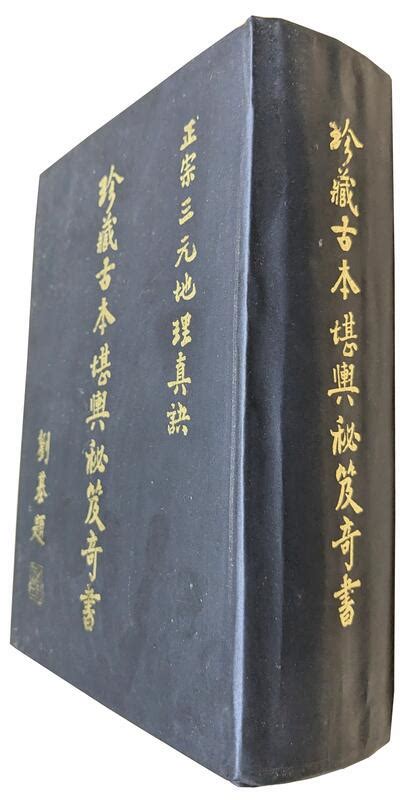 正宗三元地理真訣
珍藏古本堪輿祕笈奇書
劉基題
珍藏古本堪輿祕笈奇書